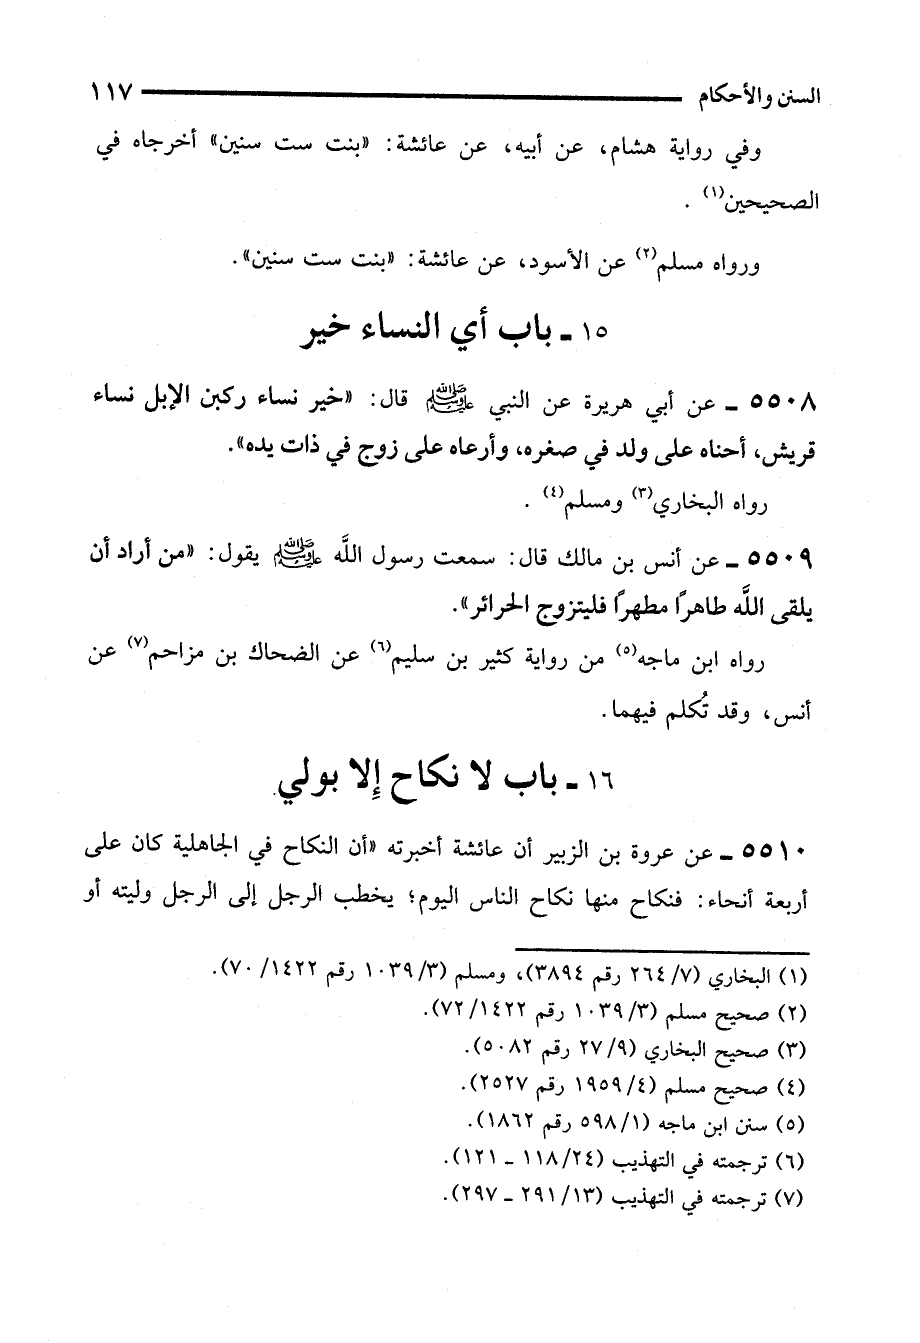 السنن والأحكام ١١٧
وفي رواية هشام، عن أبيه، عن عائشة: «بنت ست سنين» أخرجاه في
الصحيحين(١) .
ورواه مسلم(٢) عن الأسود، عن عائشة: «بنت ست سنين».
١٥ ـ باب أي النساء خير
٥٥٠٨ ـ عن أبي هريرة عن النبي ﷺ قال: «خير نساء ركبن الإبل نساء
قريش، أحناه على ولد في صغره، وأرعاه على زوج في ذات يده».
رواه البخاري(٣) ومسلم(٤) .
٥٥٠٩ ـ عن أنس بن مالك قال: سمعت رسول اللَّه ﷺ يقول: «من أراد أن
يلقى اللَّه طاهرًا مطهرًا فليتزوج الحرائر».
رواه ابن ماجه(٥) من رواية كثير بن سليم(٦) عن الضحاك بن مزاحم(٧) عن
أنس، وقد تُكلم فيهما.
١٦ ـ باب لا نكاح إلا بولي
٥٥١٠ ـ عن عروة بن الزبير أن عائشة أخبرته «أن النكاح في الجاهلية كان على
أربعة أنحاء: فنكاح منها نكاح الناس اليوم؛ يخطب الرجل إلى الرجل وليته أو
(١) البخاري (٧/ ٢٦٤ رقم ٣٨٩٤)، ومسلم (٣/ ١٠٣٩ رقم ١٤٢٢/ ٧٠).
(٢) صحيح مسلم (٣/ ١٠٣٩ رقم ١٤٢٢/ ٧٢).
(٣) صحيح البخاري (٩/ ٢٧ رقم ٥٠٨٢).
(٤) صحيح مسلم (٤/ ١٩٥٩ رقم ٢٥٢٧).
(٥) سنن ابن ماجه (١/ ٥٩٨ رقم ١٨٦٢).
(٦) ترجمته في التهذيب (٢٤/ ١١٨ ـ ١٢١).
(٧) ترجمته في التهذيب (١٣/ ٢٩١ ـ ٢٩٧).